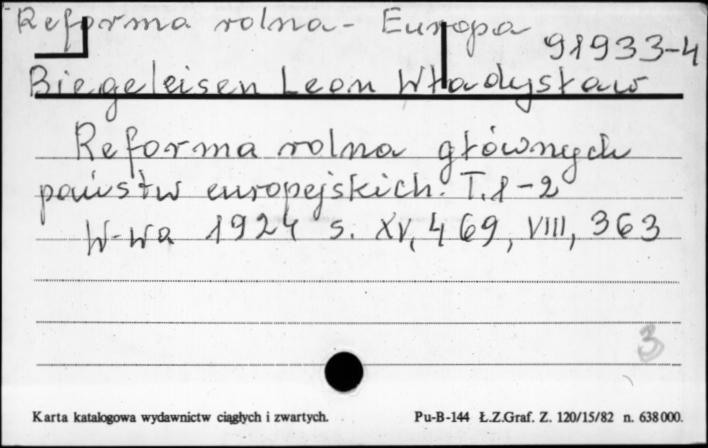 Reforma rolna - Europa
91933-4
Biegeleisen Leon Władysław
Reforma rolna głównych
państw europejskich. T.1-2
W-wa 1924 s. XV, 469, VIII, 363
3
Karta katalogowa wydawnictw ciągłych i zwartych.
Pu-B-144 Ł.Z.Graf. Z. 120/15/82 n. 638000.